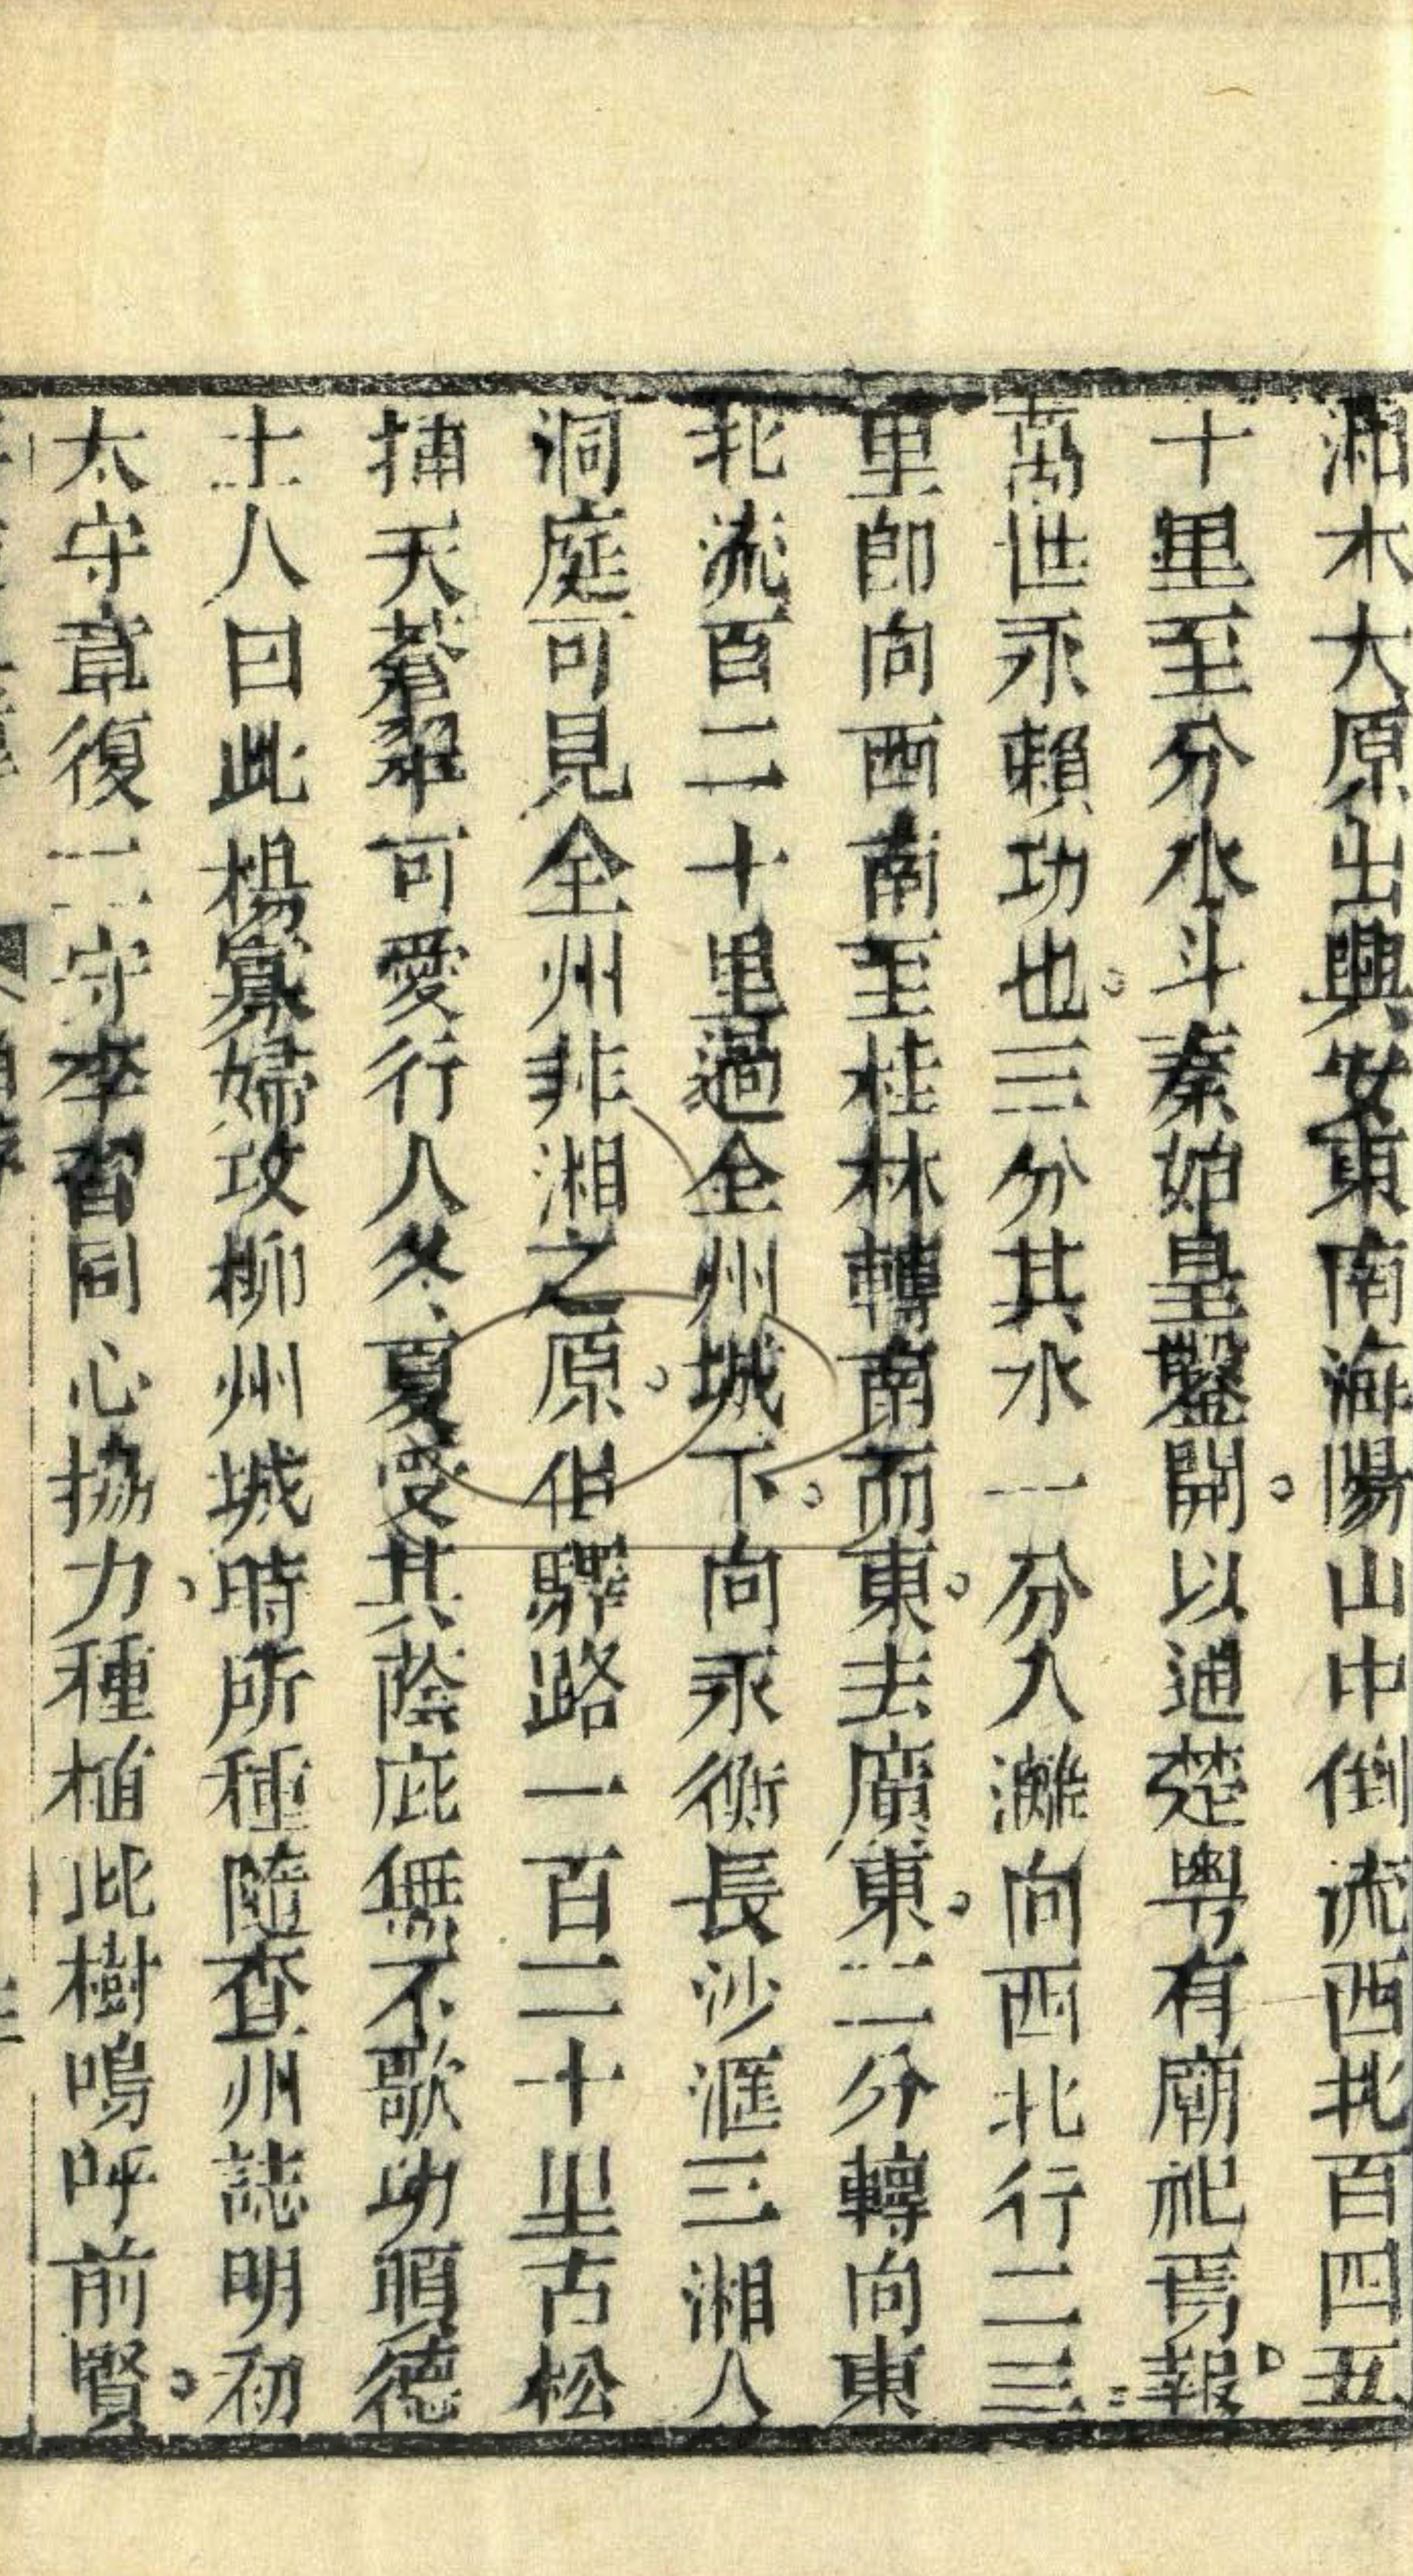 湘水大原出興安東南海陽山中倒流西北百四五
十里至分水斗秦始皇鑿開以通楚粤有廟祀焉報
萬世永賴功也三分其水一分入灕向西北行二三
里卽向西南至桂林轉南而東去廣東二分轉向東
北流百二十里過全州城下向永衡長沙滙三湘人
洞庭可見全州非湘之原但驛路一百二十里古松
插天蒼翠可愛行人冬夏受其蔭庇無不歌功頌德
土人曰此楊寡婦攻柳州城時所種隨查州誌明初
太守章復二守李習同心協力種植此樹嗚呼前賢